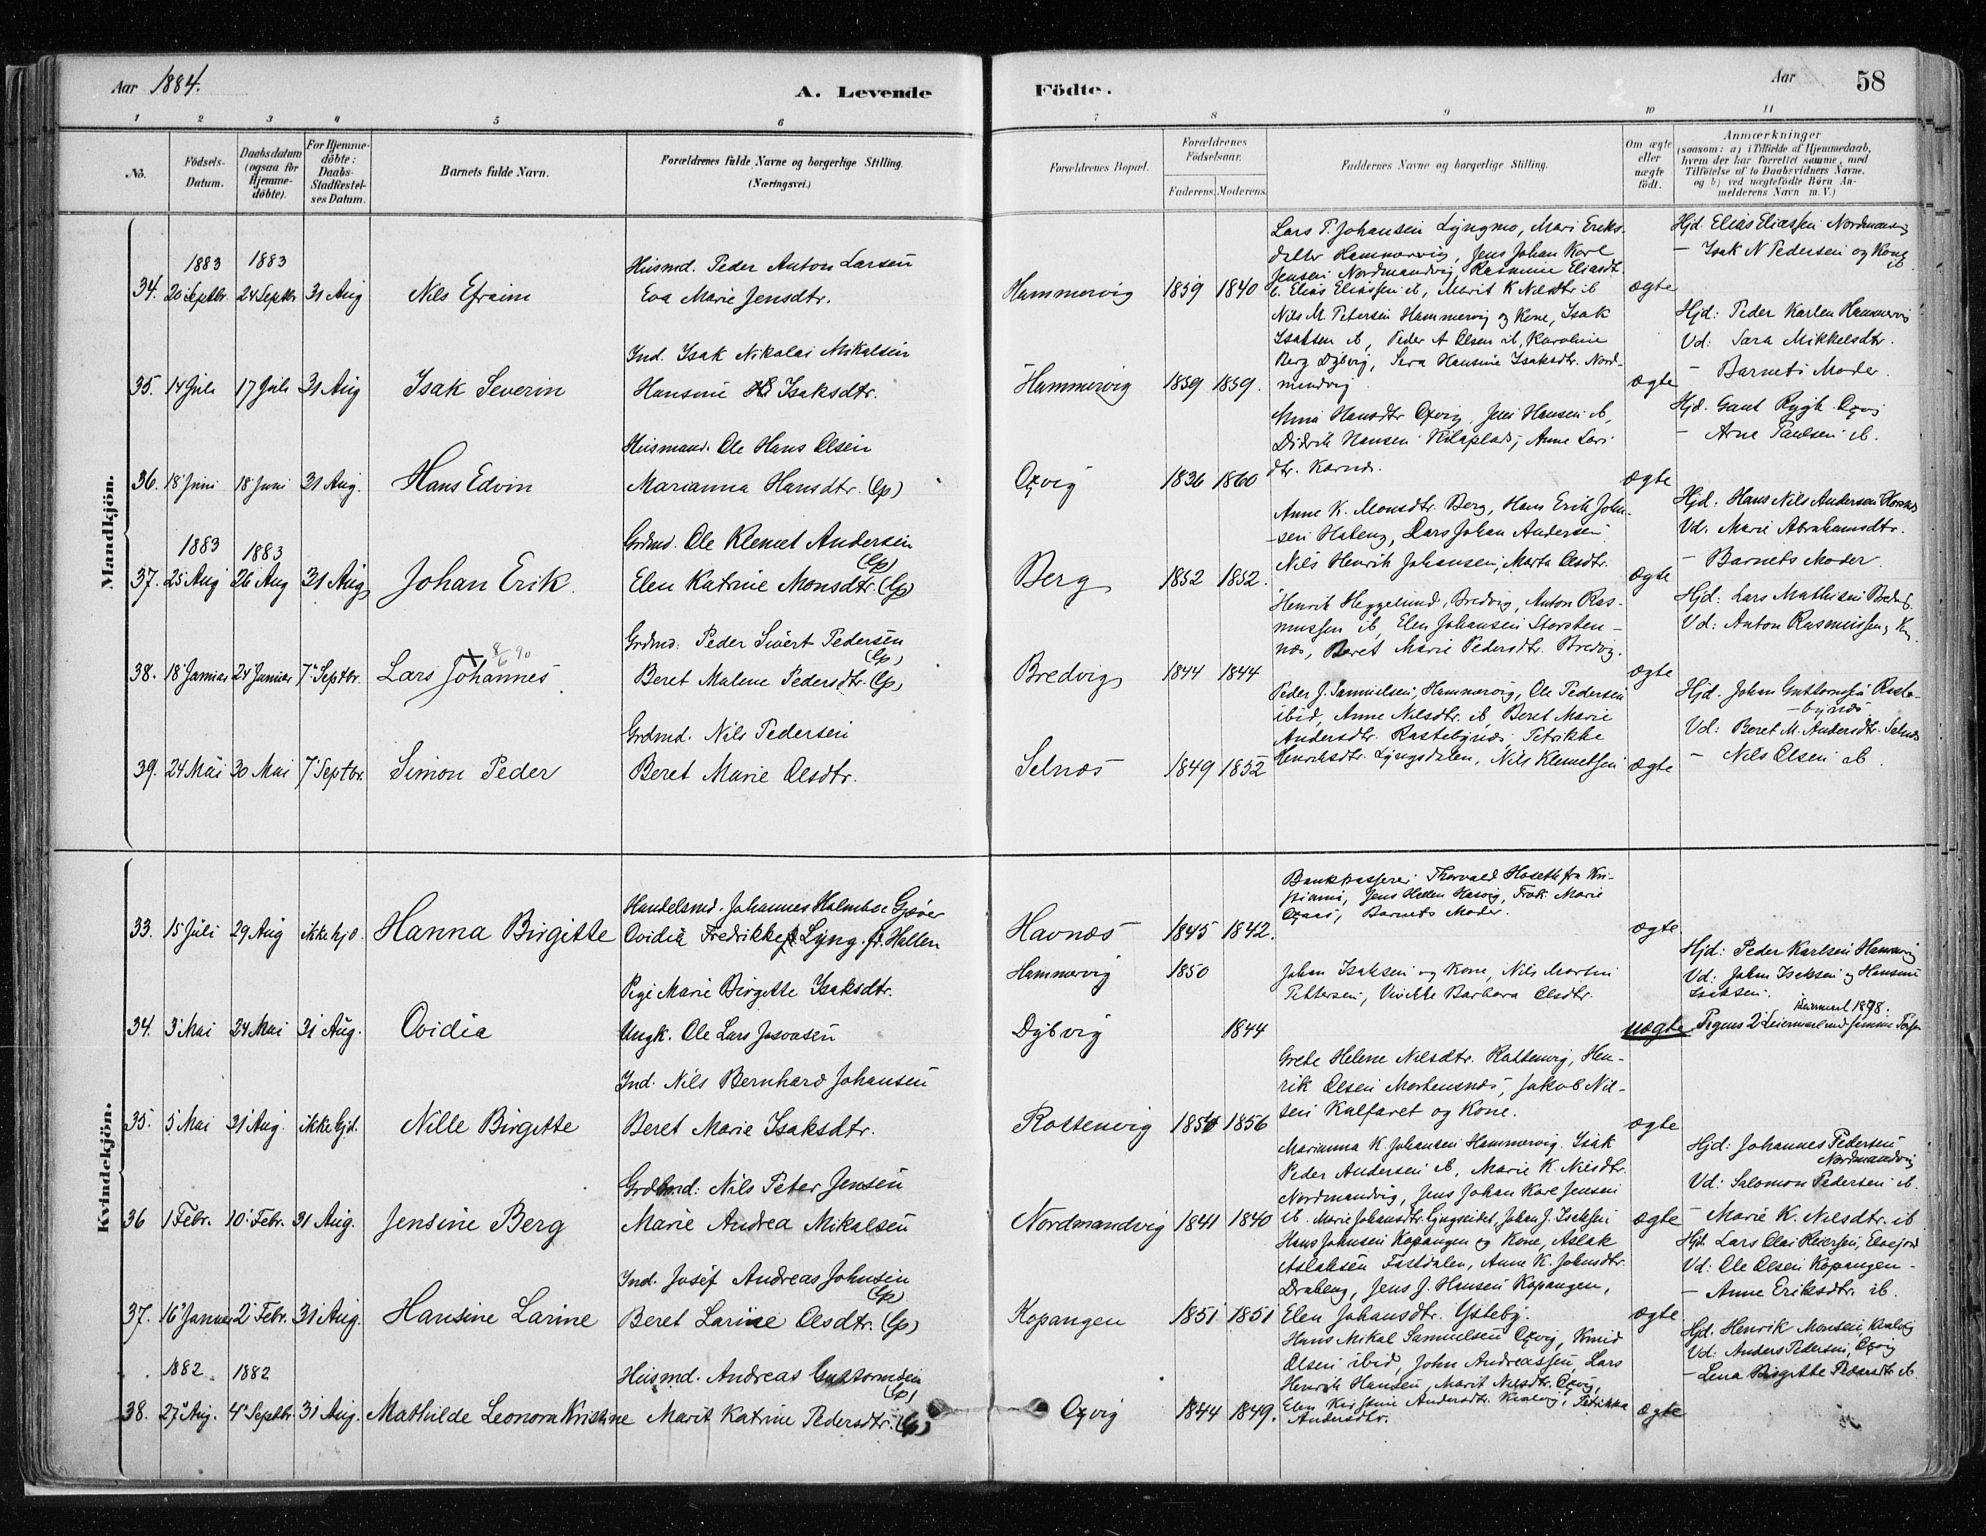 Aar 1884.
A. Levende
Födte.
Aar
58
1 2 3 4 5 6 7 8 9 10 11
No.
Födsels-Datum.
Daabsdatum (ogsaa för Hjemme-döbte).
For Hjemme-döbte: Daabs-Stadfæstel-ses Datum.
Barnets fulde Navn.
Forældrenes fulde Navne og borgerlige Stilling.
(Næringsvei.)
Forældrenes Bopæl.
Forældrenes Födselsaar.
Faderens. Moderens.
Faddernes Navne og borgerlige Stilling.
Om ægte eller uægte födt.
Anmærkninger
(saasom: a) i Tilfælde af Hjemmedaab, hvem der har forrettet samme, med Tilföielse af to Daabsvidners Navne, og b) ved uægtefödte Börn An-melderens Navn m. V.)
Mandkjön.
1883 1883
34. 20 Septbr. 24 Septbr 31 Aug Nils Efraim
Husmd. Peder Anton Larsen
Eva Marie Jensdtr.
Hammervig 1859 1840
Lars P. Johansen Lyngmo, Mari Eriks-
datter Hammervig, Jens Johan Karl
Jensen Nordmandvig, Rasmine Eliasdt.
Elias Eliassen ib, Marit K Nilsdtr ib
ægte
Hjd. Elias Eliassen Nordmandvig
- Isak N Pedersen og Kone ib.
35. 14 Juli 17 Juli 31 Aug Isak Severin
Ind. Isak Nikolai Mikalsen
Hansine Isaksdtr.
Hammervig 1859 1859.
Nils M. Petersen Hammervig og Kone, Isak
Isaksen ib, Peder A Olsen ib, Karoline
Berg Dybvig, Sera Hansine Isaksdtr. Nord-
mandvig.
ægte
Hjd: Peder Karlsen Hammervig
Vd: Sara Mikkelsdtr.
- Barnets Moder.
36. 18 Juni 18 Juni 31 Aug. Hans Edvin
Husmand. Ole Hans Olsen
Marianna Hansdtr. (Lp)
Oxvig 1836 1860
Anna Hansdtr Oxvig, Jens Hansen ib,
Didrik Hansen Kilaplads, Anne Lars
dtr. Karnæs.
ægte
Hjd. Gaut Rygh Oxvig
- Arne Paulsen ib.
1883 1883
37. 25 Aug 26 Aug 31 Aug Johan Erik
Grdmd. Ole Klemet Andersen (Lp)
Elen Katrine Monsdtr. (Lp)
Berg 1852 1852.
Anne K. Monsdtr. Berg, Hans Erik John-
sen Hateng, Lars Johan Andersen
Nils Henrik Johansen, Marta Olsdtr.
ægte
Hjd. Hans Nils Andersen Horsnes
Vd: Marie Abrahamsdtr.
- Barnets Moder.
38. 18 Januar 24 Januar 7 Septbr. Lars Johannes 8/6 90
Grdmd: Peder Sivert Pedersen (Lp)
Beret Malene Pedersdtr. (Lp)
Bredvig 1844 1844
Henrik Heggelund, Bredvig, Anton Ras-
mussen ib, Elen Johansen Storsten-
næs, Beret Marie Pedersdtr. Bredvig.
ægte
Hjd: Lars Mathisen Bredvig.
Vd: Anton Rasmussen,
39. 24 Mai 30 Mai 7 Septbr. Simon Peder
Grdmd. Nils Pedersen
Beret Marie Olsdtr.
Selnæs 1849 1852
Peder J. Samuelsen, Hammervig, Ole Pedersen
ibid, Anne Nilsdtr. ib, Beret Marie
Andersdtr. Rastebynæs, Petrikke
Henriksdtr. Lyngsdalen, Nils Klemetsen
ægte
Hjd. Johan Guttormsen Raste-
bynæs
Vd: Beret M. Andersdtr. Selnæs
- Nils Olsen ib.
Kvindekjön.
33. 15 Juli 29 Aug ikke hjd. Hanna Birgitte
Handelsmd. Johannes Holmboe Gjæver
Ovidia Fredrikke Lyng. fd. Hallen
Havnæs 1845 1842.
Bankkasserer Thorvald Hoseth fra Kri-
stiania, Jens Hellen Havig, Frøk. Marie
Barnets Moder.
ægte
34. 3 Mai 24 Mai 31 Aug. Ovidia
Pige Marie Birgitte Isaksdtr.
Ungk. Ole Lars Josvasen
Hammervig 1850
Dybvig 1844
Johan Isaksen og Kone, Nils Martin
Pettersen, Vivikke Barbara Olsdtr.
uægte
Hjd: Peder Karlsen Hammervig
Vd: Johan Isaksen og Hansine
Isaksen.
Pigens 2 Leiermaal med samme
35. 5 Mai 31 Aug. ikke hjd. Nille Birgitte
Ind. Nils Bernhard Johansen
Beret Marie Isaksdtr.
Rottenvig 1856
Grete Helene Nilsdtr. Rottenvig, Hen-
rik Olsen Mortensnæs, Jakob Nil-
sen Kalfaret og Kone.
ægte
36 1 Febr. 10 Febr. 31 Aug. Jensine Berg
Grdmd: Nils Peter Jensen
Marie Andrea Mikalsen
Nordmandvig 1841 1840
Marianna K. Johansen Hammervig, Isak
Peder Andersen ib, Marie K. Nilsdtr.
Nordmandvig, Jens Johan Karl Jensen
ib. Marie Johansdtr. Lyngseidet, Johan J. Isaksen
ægte
Hjd: Johannes Pedersen
Nordmandvig
Vd: Salomon Pedersen ib.
- Marie K. Nilsdtr. ib
37. 16 Januar 2 Febr. 31 Aug. Hansine Larine
Ind. Josef Andreas Johnsen (Lp)
Beret Larine Olsdtr. (Lp)
Kopangen 1851 1851
Hans Johnsen Kopangen og Kone, Aslak
Aslaksen Fastdalen, Anne K. Johnsdtr.
Draberg, Jens J. Hansen Kopangen,
Elen Johansdtr. Ysteby.
ægte
Hjd. Lars Olai Reiersen, Elvejord
Vd: Ole Olsen Kopangen
- Anne Eriksdtr. ib.
1882 1882
38. 27 Aug. 4 Septbr 31 Aug. Mathilde Leonora Kristine
Husmd. Andreas Guttormsen (Lp)
Marit Katrine Pedersdtr. (Lp)
Oxvig 1844 1849.
Hans Mikal Samuelsen Oxvig, Knud
Olsen ibid, John Andreassen, Lars
Henrik Hansen, Marit Nilsdtr. Oxvig,
Elen Kirstine Andersdtr. Kvalvig, Petrikka
Andersdtr.
ægte
Hjd. Henrik Monsen, Kvalvig
Vd: Anders Pedersen, Oxvig
- Lena Birgitte Pedersdtr ib